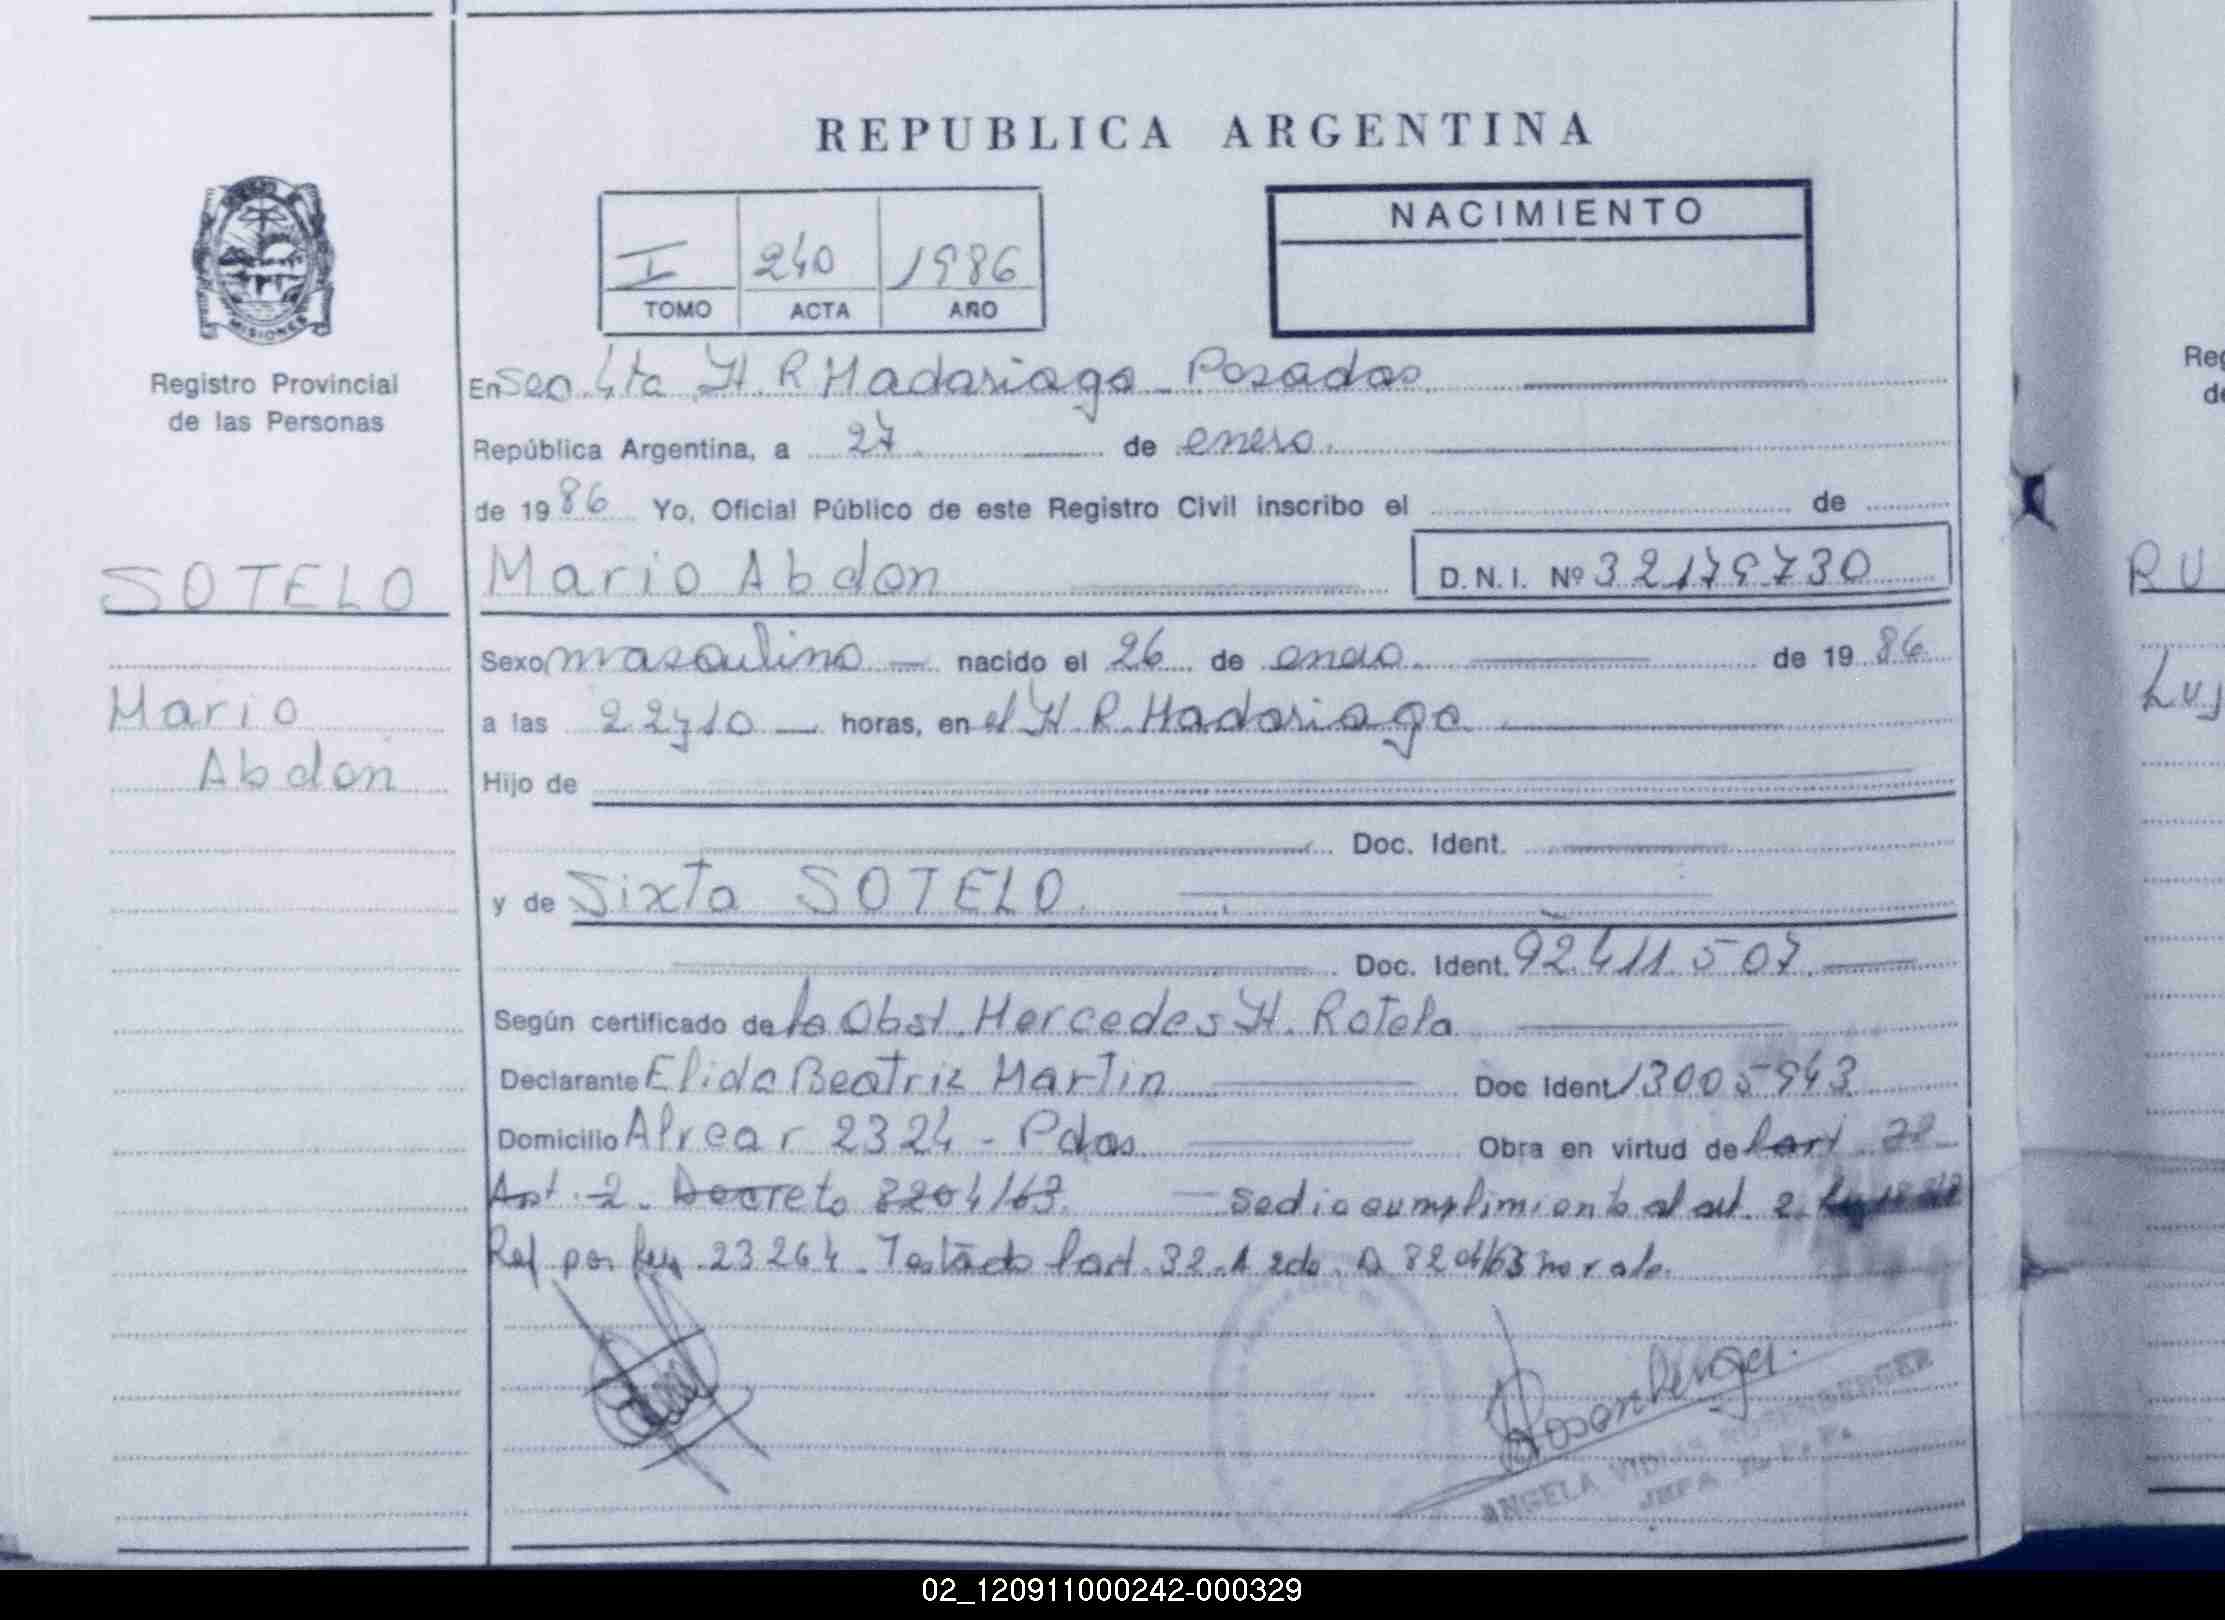 REPUBLICA ARGENTINA
NACIMIENTO
I 240 1986
TOMO ACTA AÑO
MISIONES
Registro Provincial
de las Personas
En Sec. 4ta H. R. Madariaga - Posadas
República Argentina, a 27 de enero
de 1986 Yo, Oficial Público de este Registro Civil inscribo el de
SOTELO
Mario Abdon
D.N.I. Nº 32179730
Sexo masculino nacido el 26 de enero de 1986
Mario
Abdon
a las 22 y 10 horas, en el H. R. Madariaga
Hijo de
Doc. Ident.
y de Sixta SOTELO
Doc. Ident. 92.411.507
Según certificado de la Obst. Mercedes H. Rotela
Declarante Elida Beatriz Martin Doc Ident 13005943
Domicilio Alvear 2324 - Pdas Obra en virtud de
Art. 2. Decreto 8204/63. - Se dio cumplimiento al art. 2
Ref. por Ley 23264. Testado 8204/63 no vale.
Rosenberger
ANGELA ROSENBERGER
JEFA
Reg
de
RU
Luj
02_120911000242-000329